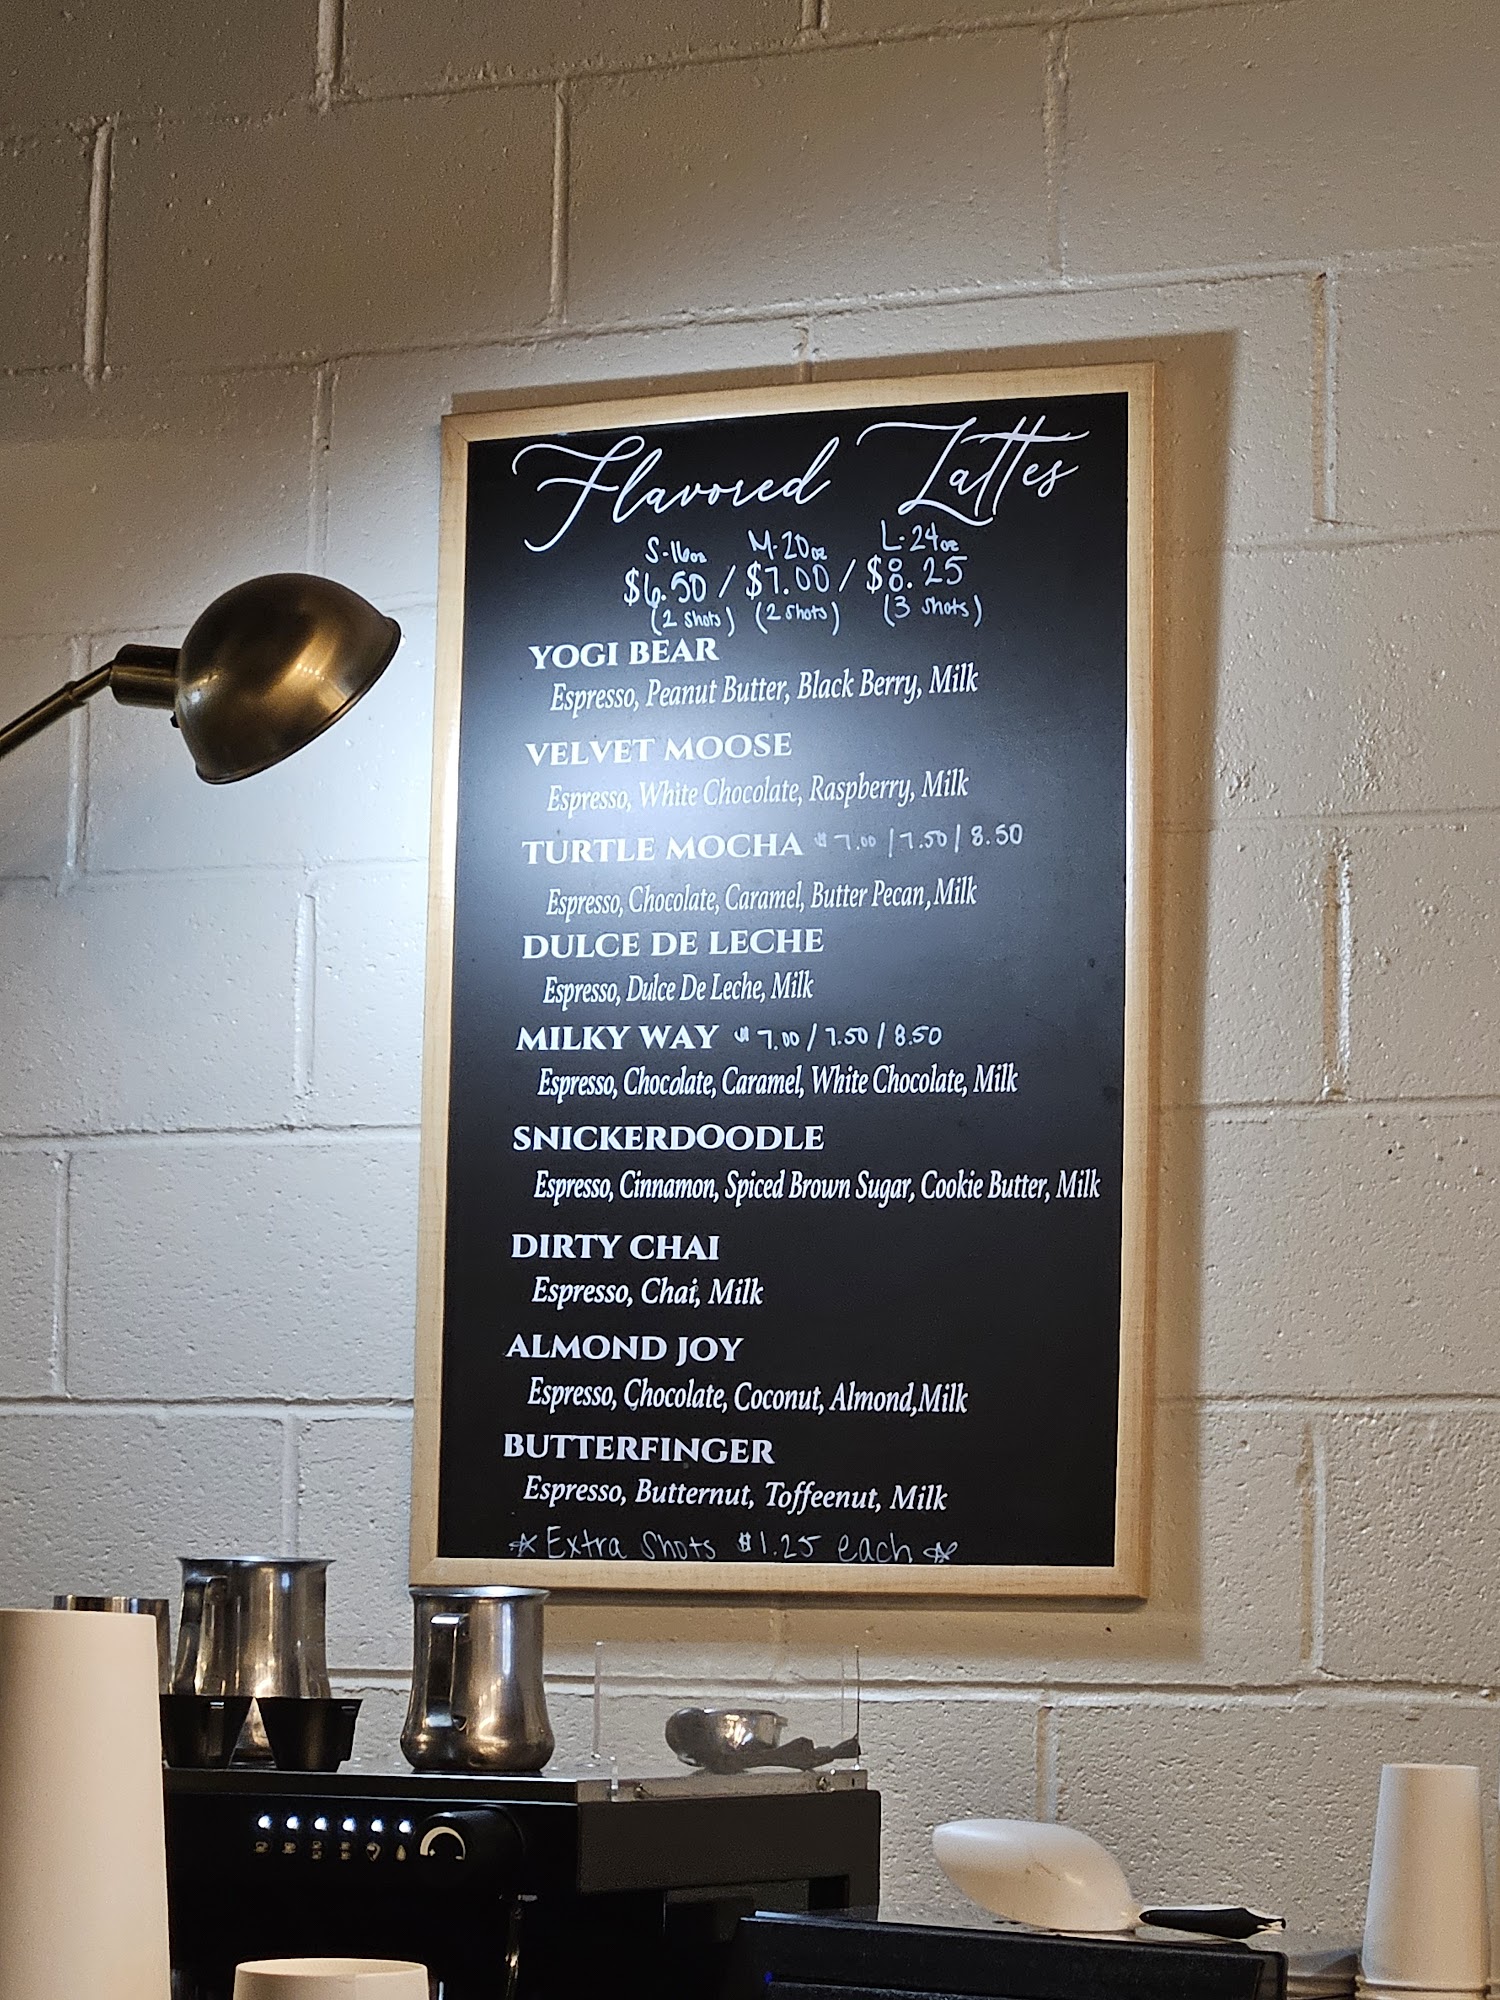 Flavored Lattes
S-16oz M-20oz L-24oz
$6.50 / $7.00 / $8.25
(2 shots) (2 shots) (3 shots)
YOGI BEAR
Espresso, Peanut Butter, Black Berry, Milk
VELVET MOOSE
Espresso, White Chocolate, Raspberry, Milk
TURTLE MOCHA $7.00 / 7.50 / 8.50
Espresso, Chocolate, Caramel, Butter Pecan, Milk
DULCE DE LECHE
Espresso, Dulce De Leche, Milk
MILKY WAY $7.00 / 7.50 / 8.50
Espresso, Chocolate, Caramel, White Chocolate, Milk
SNICKERDOODLE
Espresso, Cinnamon, Spiced Brown Sugar, Cookie Butter, Milk
DIRTY CHAI
Espresso, Chai, Milk
ALMOND JOY
Espresso, Chocolate, Coconut, Almond,Milk
BUTTERFINGER
Espresso, Butternut, Toffeenut, Milk
☆ Extra Shots $1.25 each ☆